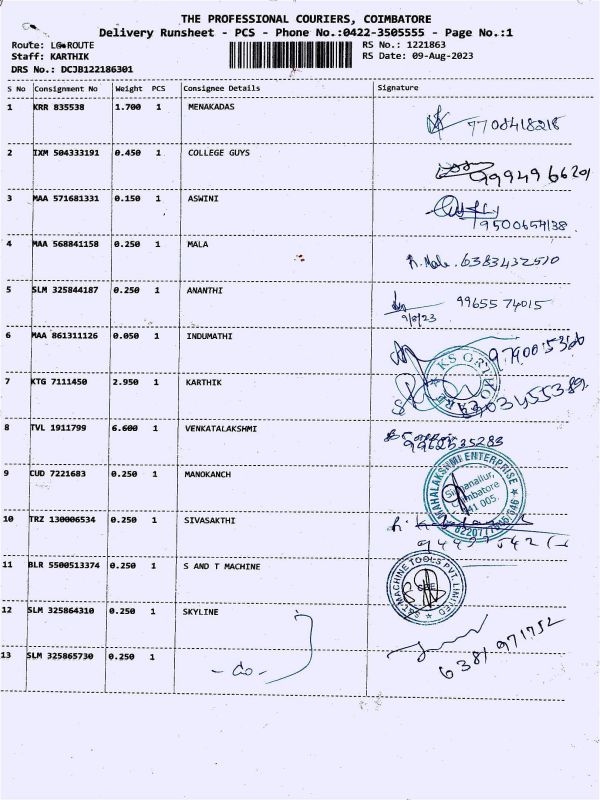 THE PROFESSIONAL COURIERS, COIMBATORE
Delivery Runsheet - PCS - Phone No.:0422-3505555 - Page No.:1
Route: L ROUTE
RS No.: 1221863
Staff: KARTHIK
RS Date: 09-Aug-2023
DRS No.: DCJB122186301
S No Consignment No Weight PCS Consignee Details Signature
1 KRR 835538 1.700 1 MENAKADAS 7708418218
2 IXM 504333191 0.450 1 COLLEGE GUYS 9994966201
3 MAA 571681331 0.150 1 ASWINI 9500654138
4 MAA 568841158 0.250 1 MALA 6383432510
5 SLM 325844187 0.250 1 ANANTHI 99655 74015
9/8/23
6 MAA 861311126 0.050 1 INDUMATHI
KS ORTHO CARE
7 KTG 7111450 2.950 1 KARTHIK
8 TVL 1911799 6.600 1 VENKATALAKSHMI 9962535283
9 CUD 7221683 0.250 1 MANOKANCH
MAHALAKSHMI ENTERPRISE
Coimbatore
641 005.
10 TRZ 130006534 0.250 1 SIVASAKTHI
11 BLR 5500513374 0.250 1 S AND T MACHINE
S&T MACHINE TOOLS PVT. LIMITED
12 SLM 325864310 0.250 1 SKYLINE
13 SLM 325865730 0.250 1 - do - 6381971752